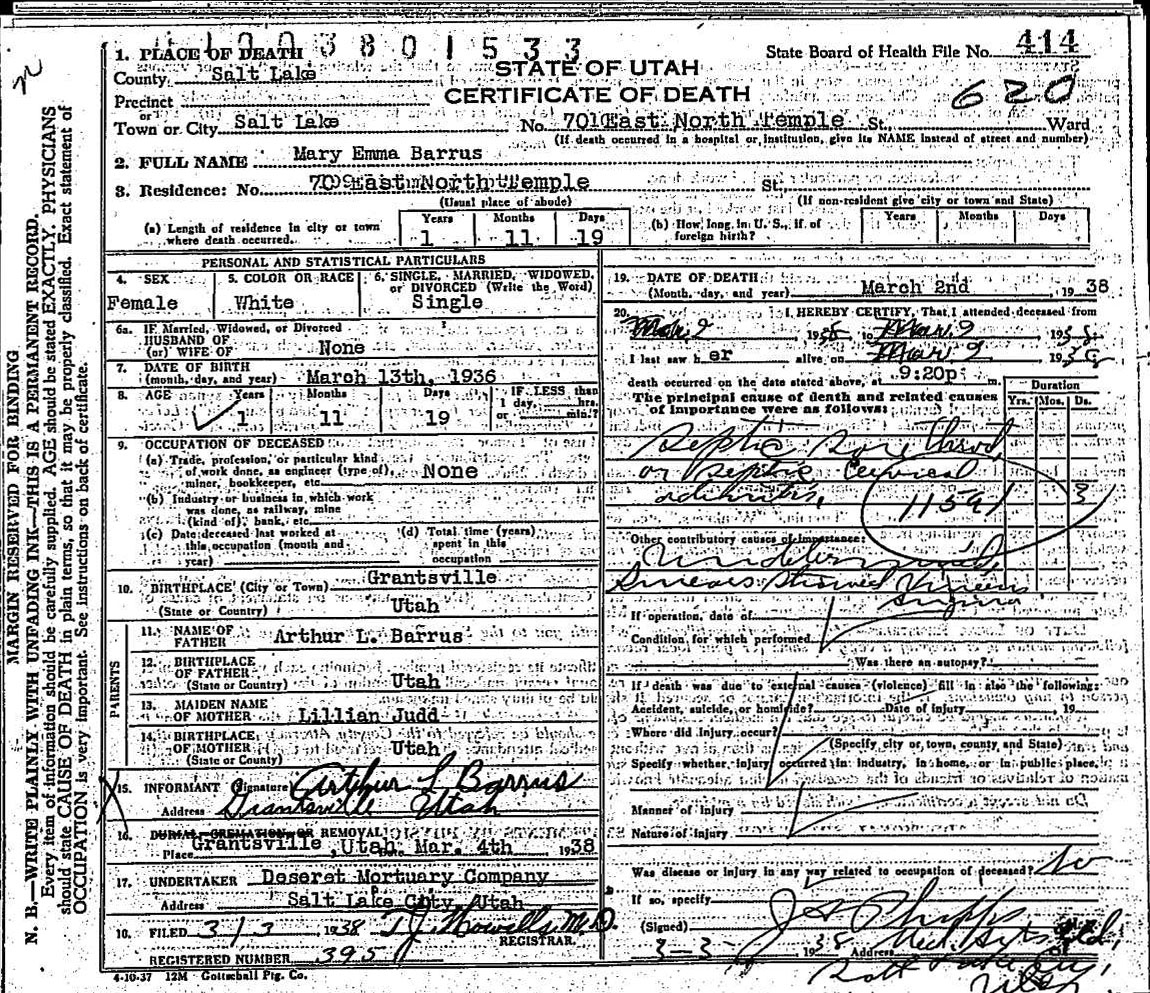 1003801533
State Board of Health File No. 414
1. PLACE OF DEATH
STATE OF UTAH
County Salt Lake
CERTIFICATE OF DEATH
620
Precinct
or
Town or City Salt Lake No. 701 East North Temple St., Ward
(If death occurred in a hospital or institution, give its NAME instead of street and number)
2. FULL NAME Mary Emma Barrus
3. Residence: No. East North Temple St.,
(Usual place of abode) (If non-resident give city or town and State)
(a) Length of residence in city or town where death occurred. Years 1 Months 11 Days 19
(b) How long in U. S., if of foreign birth? Years Months Days
PERSONAL AND STATISTICAL PARTICULARS
4. SEX Female
5. COLOR OR RACE White
6. SINGLE, MARRIED, WIDOWED, or DIVORCED (Write the Word) Single
6a. If Married, Widowed, or Divorced
HUSBAND OF
(or) WIFE OF None
7. DATE OF BIRTH
(month, day, and year) March 13th, 1936
8. AGE Years 1 Months 11 Days 19 IF LESS than 1 day, hrs. or min.?
9. OCCUPATION OF DECEASED
(a) Trade, profession, or particular kind
of work done, as engineer (type of), None
miner, bookkeeper, etc.
(b) Industry or business in which work
was done, as railway, mine
(kind of), bank, etc.
(c) Date deceased last worked at
this occupation (month and
year)
(d) Total time (years)
spent in this
occupation
10. BIRTHPLACE (City or Town) Grantsville
(State or Country) Utah
PARENTS
11. NAME OF
FATHER Arthur L. Barrus
12. BIRTHPLACE
OF FATHER
(State or Country) Utah
13. MAIDEN NAME
OF MOTHER Lillian Judd
14. BIRTHPLACE
OF MOTHER
(State or Country) Utah
15. INFORMANT (Signature) Arthur L Barrus
Address Grantsville Utah
16. BURIAL, CREMATION, OR REMOVAL
Place Grantsville, Utah Date Mar. 4th 1938
17. UNDERTAKER Deseret Mortuary Company
Address Salt Lake City, Utah
18. FILED 3/3 1938 T.J. Howells, M.D.
REGISTRAR.
REGISTERED NUMBER 395
4-10-37 12M Gottschall Ptg. Co.
19. DATE OF DEATH
(Month, day, and year) March 2nd, 1938
20. I HEREBY CERTIFY, That I attended deceased from
Mar 2 1938 to Mar 2 1938
I last saw her alive on Mar 2 1938
death occurred on the date stated above, at 9:20p m.
The principal cause of death and related causes
of importance were as follows:
Duration
Yrs. Mos. Ds.
Septic Sore throat
or septic cervical
adenitis,
1159
3
Other contributory causes of importance:
Smears showed Vincents
angina
If operation, date of
Condition for which performed
Was there an autopsy?
If death was due to external causes (violence) fill in also the following:
Accident, suicide, or homicide? Date of injury , 19
Where did injury occur?
(Specify city or town, county, and State)
Specify whether injury occurred in industry, in home, or in public place,
Manner of Injury
Nature of injury
Was disease or injury in any way related to occupation of deceased? No
If so, specify
(Signed) Phipps
3-3- 1938 Address
Salt Lake City,
Utah
MARGIN RESERVED FOR BINDING
N. B.—WRITE PLAINLY WITH UNFADING INK—THIS IS A PERMANENT RECORD.
Every item of information should be carefully supplied. AGE should be stated EXACTLY. PHYSICIANS
should state CAUSE OF DEATH in plain terms, so that it may be properly classified. Exact statement of
OCCUPATION is very important. See instructions on back of certificate.